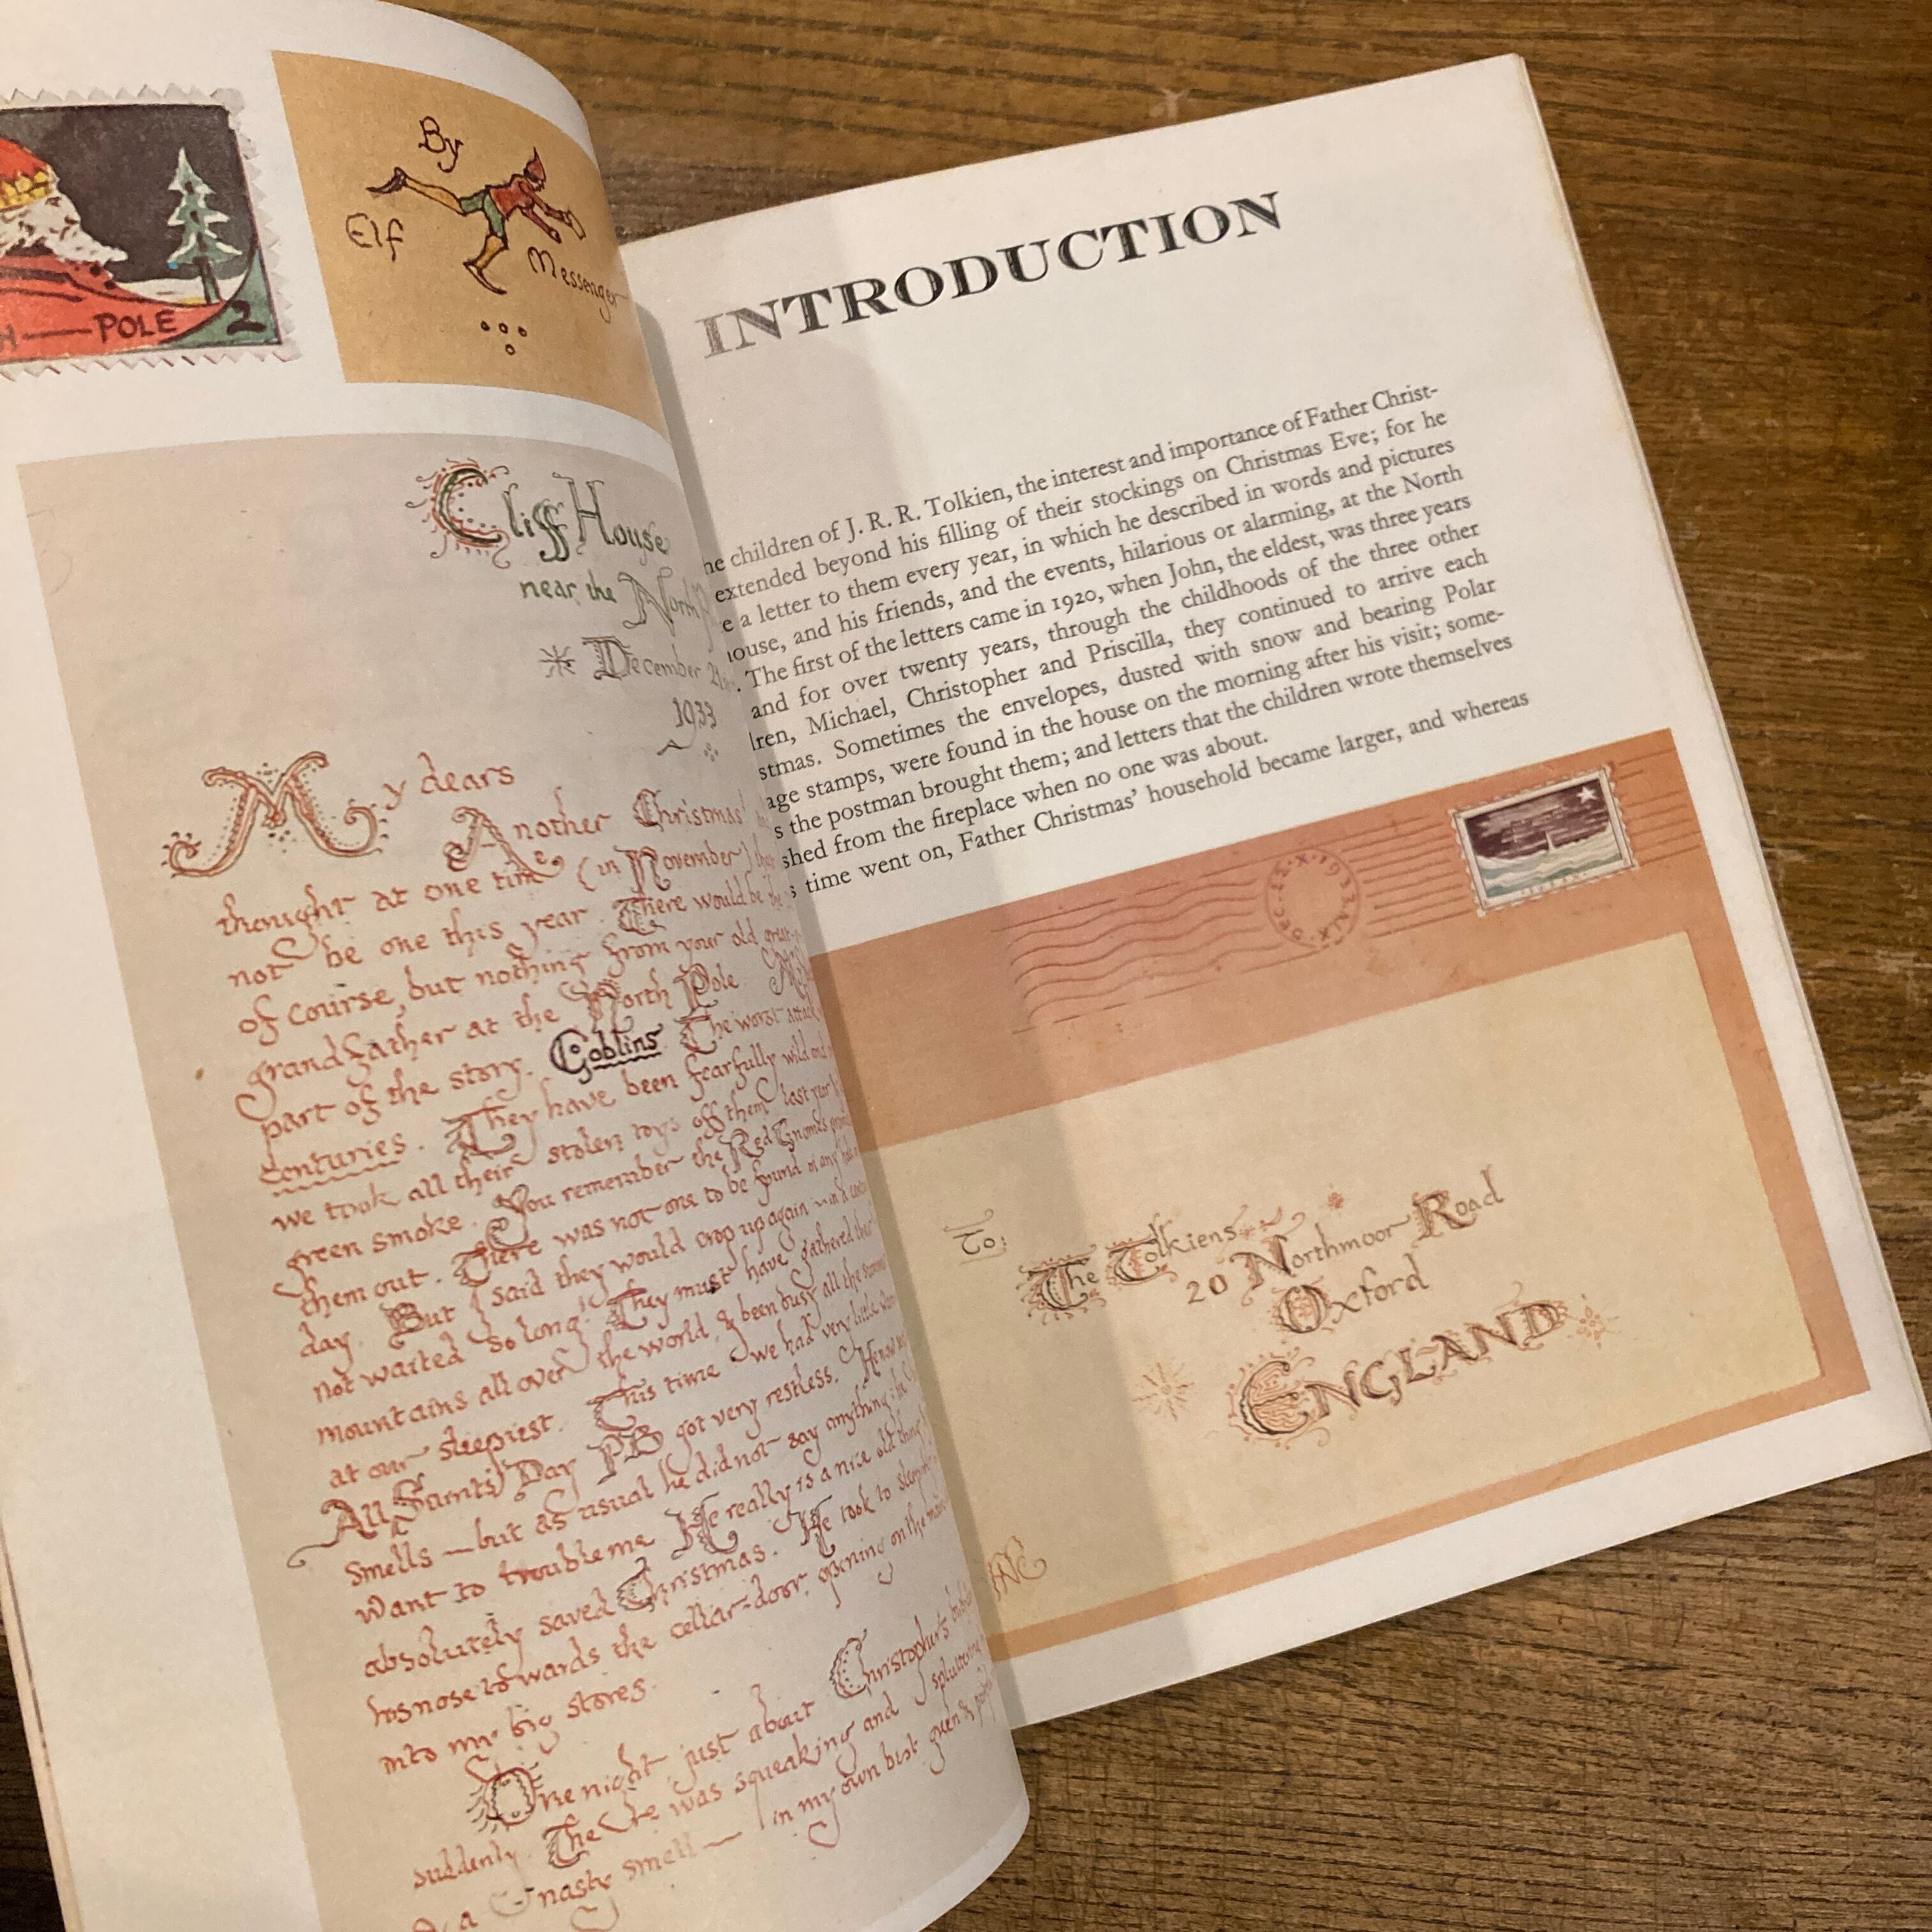 POLE
2
By
Elf
Messenger
Cliff House
near the North
December 21
1933
My dears
Another Christmas!
thought at one time (in November)
not be one this year. There would be the
of course, but nothing from your old great-
grandfather at the North Pole.
part of the story. Goblins. The worst attack
centuries. They have been fearfully wild and
we took all their stolen toys off them last year
green smoke. You remember the Red Gnomes
them out. There was not one to be found in any
day. But I said they would crop up again in a
not waited so long! They must have gathered their
mountains all over the world, & been busy all the
at our sleepiest. This time we had very little
All Saints' Day PB got very restless. He now says
smells — but as usual he did not say anything:
want to trouble me. He really is a nice old thing
absolutely saved Christmas. He took to sleeping
his nose towards the cellar-door, opening on the
into my big stores.
One night just about Christopher's
suddenly. There was squeaking and spluttering
& a nasty smell — in my own best green &
INTRODUCTION
children of J. R. R. Tolkien, the interest and importance of Father Christ-
extended beyond his filling of their stockings on Christmas Eve; for he
a letter to them every year, in which he described in words and pictures
ouse, and his friends, and the events, hilarious or alarming, at the North
The first of the letters came in 1920, when John, the eldest, was three years
and for over twenty years, through the childhoods of the three other
ren, Michael, Christopher and Priscilla, they continued to arrive each
stmas. Sometimes the envelopes, dusted with snow and bearing Polar
age stamps, were found in the house on the morning after his visit; some-
s the postman brought them; and letters that the children wrote themselves
shed from the fireplace when no one was about.
s time went on, Father Christmas' household became larger, and whereas
To:
The Tolkiens
20 Northmoor Road
Oxford
ENGLAND